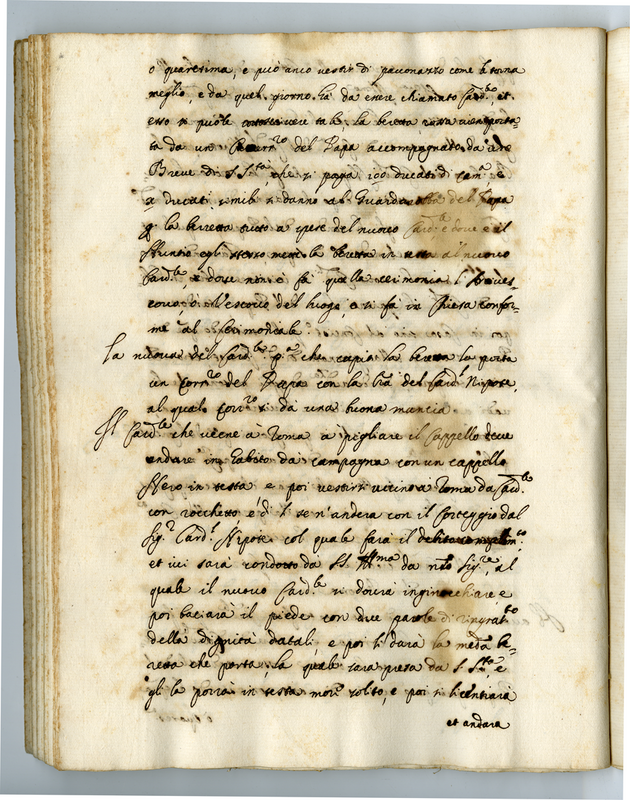 o quaresima, e può anco vestir di paonazzo come li torna
meglio, e da quel giorno hà da essere chiamato Card.le, et
esso si puole sottoscrivere tale, la beretta rossa vien porta-
ta da un del Papa accompagnato da un
Breve di S. S.tà, che si paga 100 ducati di Cam.a e
ducati simili si danno al Guardarobba del Papa
p la berretta tutto a spese del nuovo Card.le e dove è il
Nuntio egli stesso mette la beretta in testa al nuovo
Card.le, e dove non è fà quella cerimonia il
covo, ò Vescovo del luogo, e si fà in Chiesa confor-
me al Cerimoniale
La nuova del Card.le p.a che capia la beretta la porta
un Corr.ro del Papa con la l'ra del Card.l Nipote,
al qual Corr.ro si dà una buona mancia
Il Card.le che viene à Roma a pigliare il Cappello deve
andare in habito da campagna con un cappello
Nero in testa e poi vestirsi vicino à Roma da Card.le
con rocchetto e di lì se n'andera con il Corteggio dal
Sig.r Card.l Nipote col quale farà il
et ivi sarà condotto da S.S. Ill.ma da n'ro Sig.re, al
quale il nuovo Card.le si dovrà inginocchiare, e
poi baciarà il piede con due parole di ringrat.to
della dignità datali, e poi li darà la med.a be-
retta che porta, la quale sarà presa da S. S.tà, e
gli la porrà in testa more solito, e poi si licentiarà
et andara